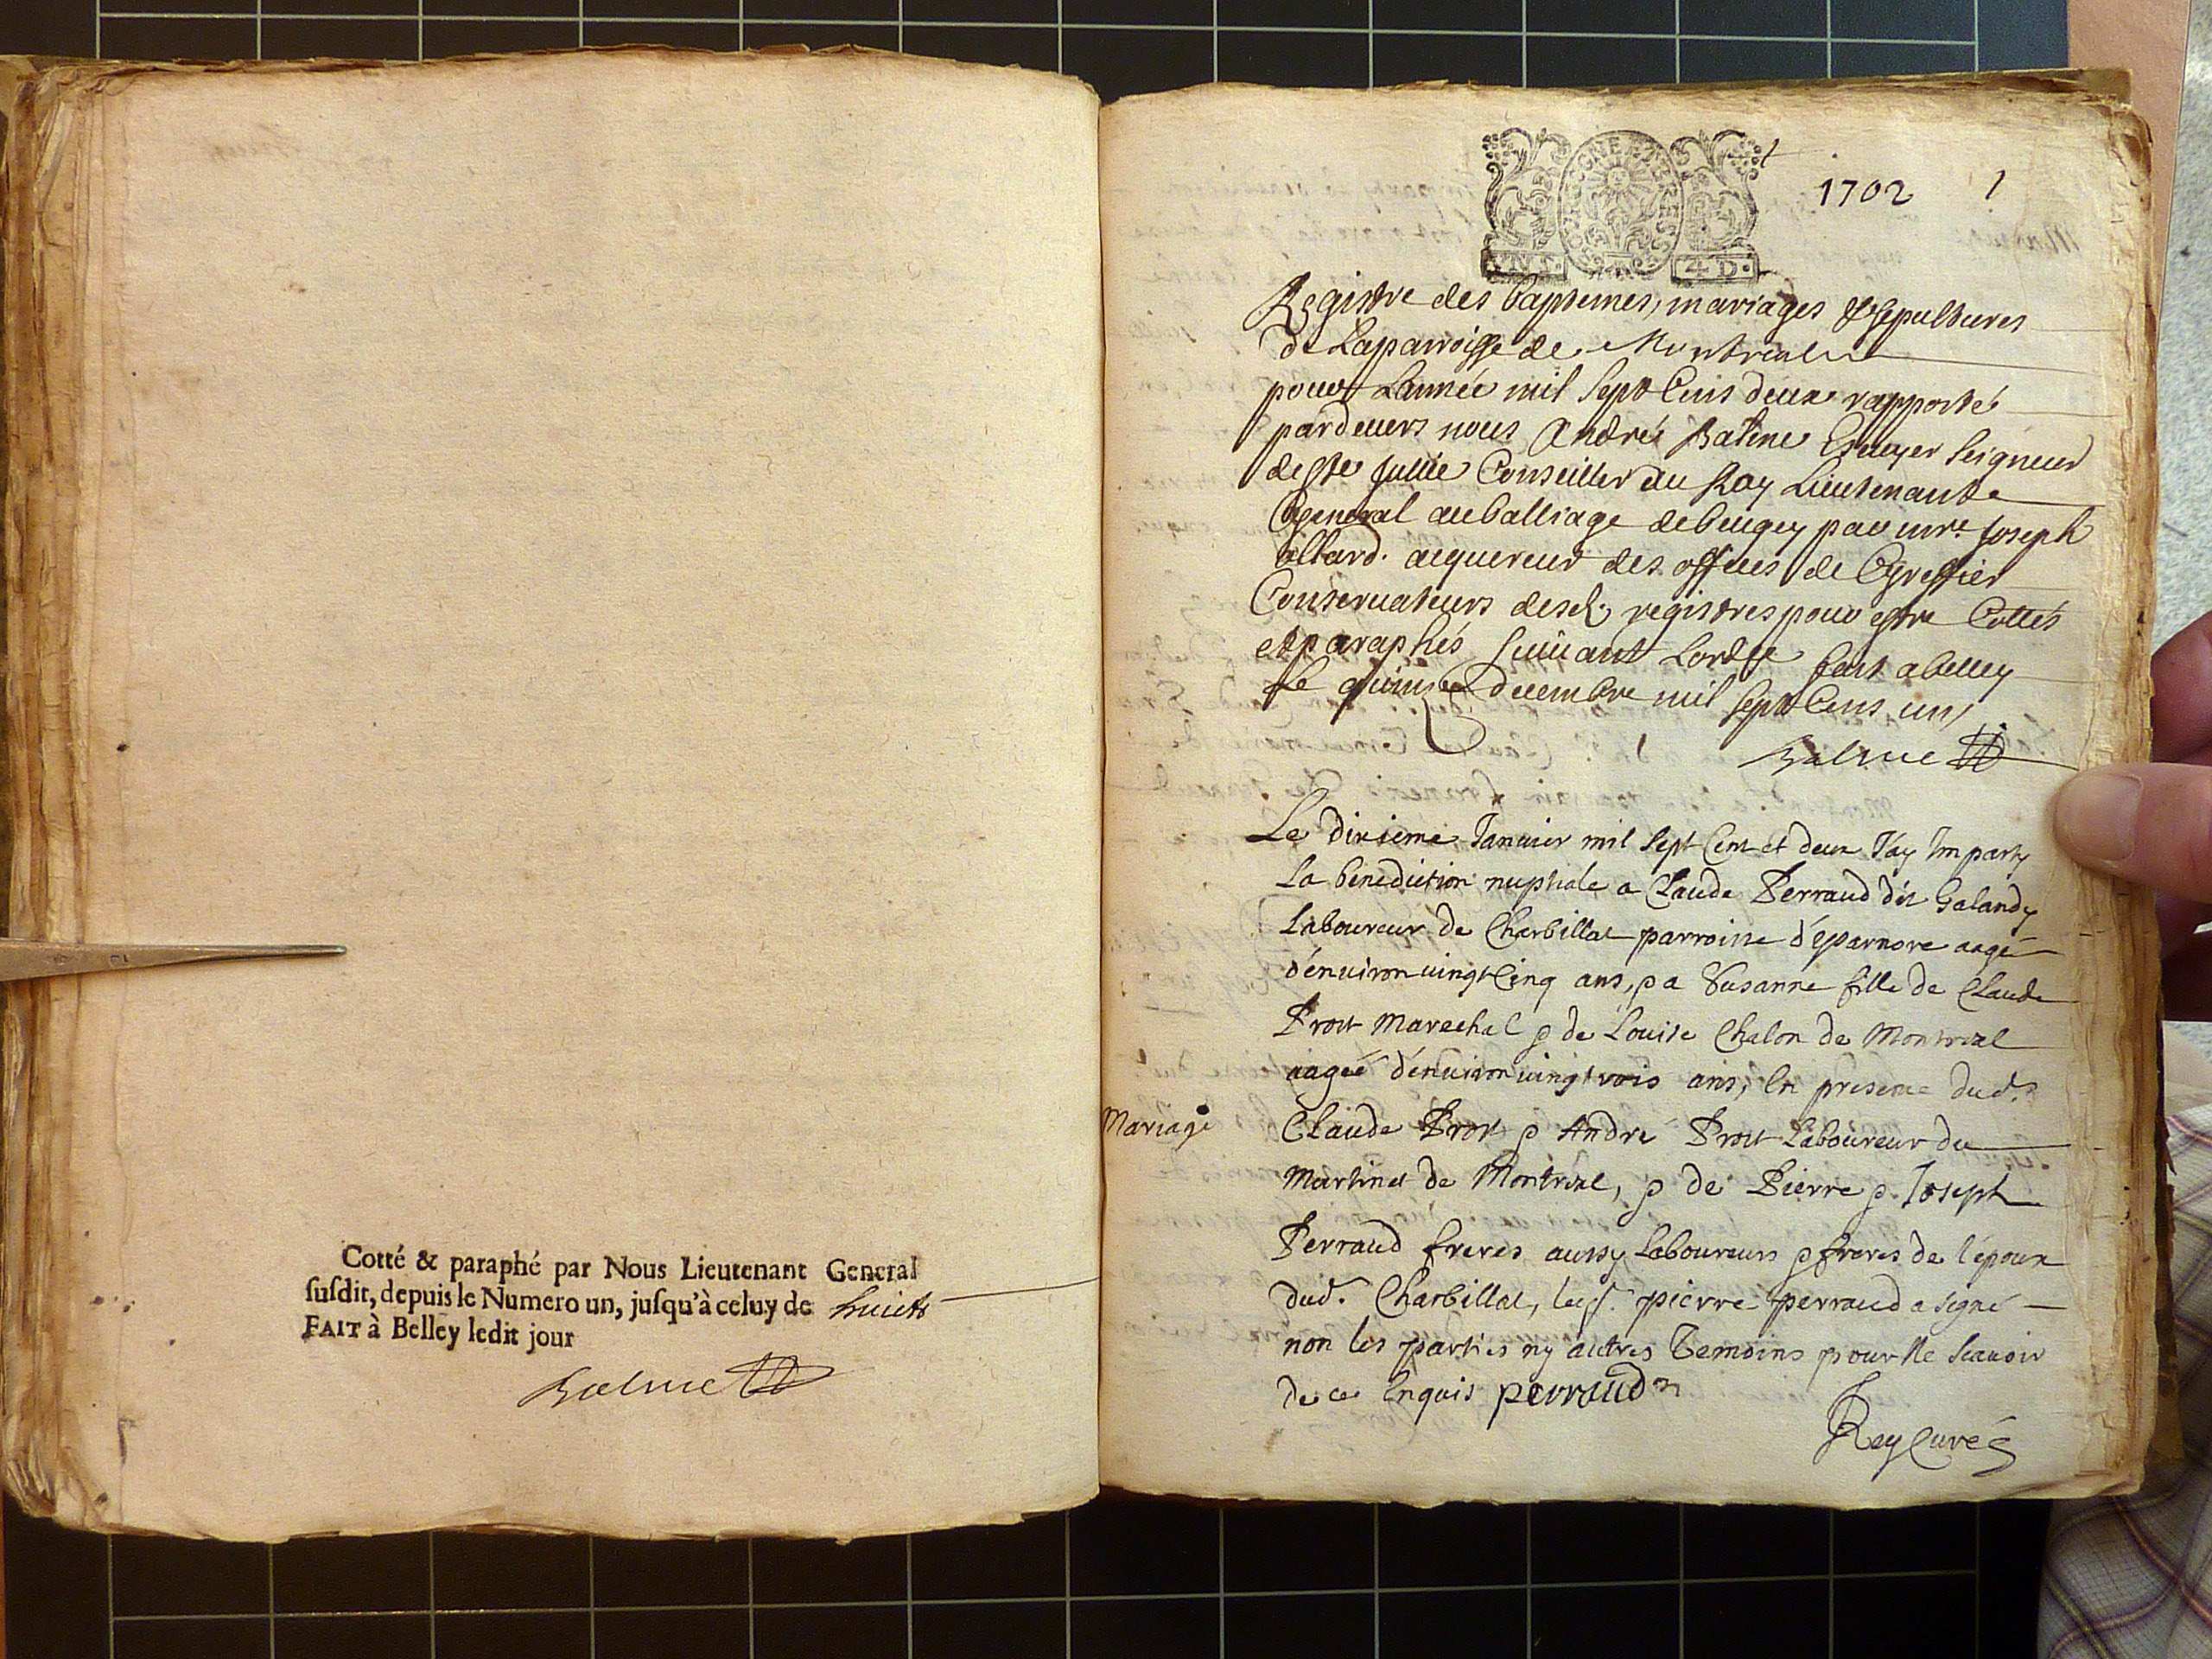 Cotté & paraphé par Nous Lieutenant General
suſdit, depuis le Numero un, juſqu'à celuy de huict
FAIT à Belley ledit jour
Balme
1702 1
4 D.
Registre des baptemes, mariages & sepultures
de La parroisse de Montreal
pour Lannée mil sept Cens deux rapporté
pardeuers nous André Balme Escuyer seigneur
de Ste Jullie Conseiller du Roy Lieutenant
General au balliage de beugey par mre Joseph
allard. acquereur des offices de Greffier
Conseruateurs desd. registres pour estre Cottés
et paraphés suiuant Lordce fait a belley
Le quinze decembre mil sept Cens un
Balme
Le dixieme Januier mil sept Cent et deux J'ay Imparty
La benediction nuptiale a Claude Perraud dit Galandy
Laboureur de Charbillat parroisse d'eparnore aagé
d'enuiron uingt Cinq ans, & a Susanne fille de Claude
Prost Marechal & de Louise Chalon de Montreal
aagée d'enuiron uingt trois ans, En presence dud.
Mariage
Claude Prost & André Prost Laboureur du
Martinet de Montreal, & de Pierre & Joseph
Perraud freres aussy Laboureurs & freres de l'epoux
dud. Charbillat, led. pierre perraud a signé
non les parties ny autres Temoins pour ne scauoir
de ce Enquis perraud
Rey Curé